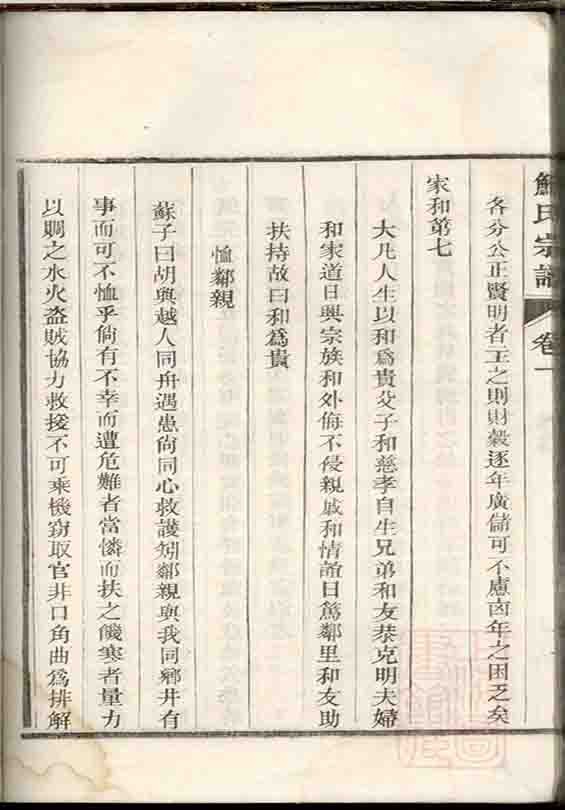 鮑氏宗譜 卷一
各分公正賢明者主之則財穀逐年廣儲可不慮凶年之困乏矣
家和第七
大凡人生以和爲貴父子和慈孝自生兄弟和友恭克明夫婦
和家道日興宗族和外侮不侵親戚和情誼日篤鄰里和友助
扶持故曰和爲貴
恤鄰親
蘇子曰胡與越人同舟遇患尙同心救護矧鄰親與我同鄉井有
事而可不恤乎倘有不幸而遭危難者當憐而扶之饑寒者量力
以賙之水火盜賊協力救援不可乘機竊取官非口角曲爲排解